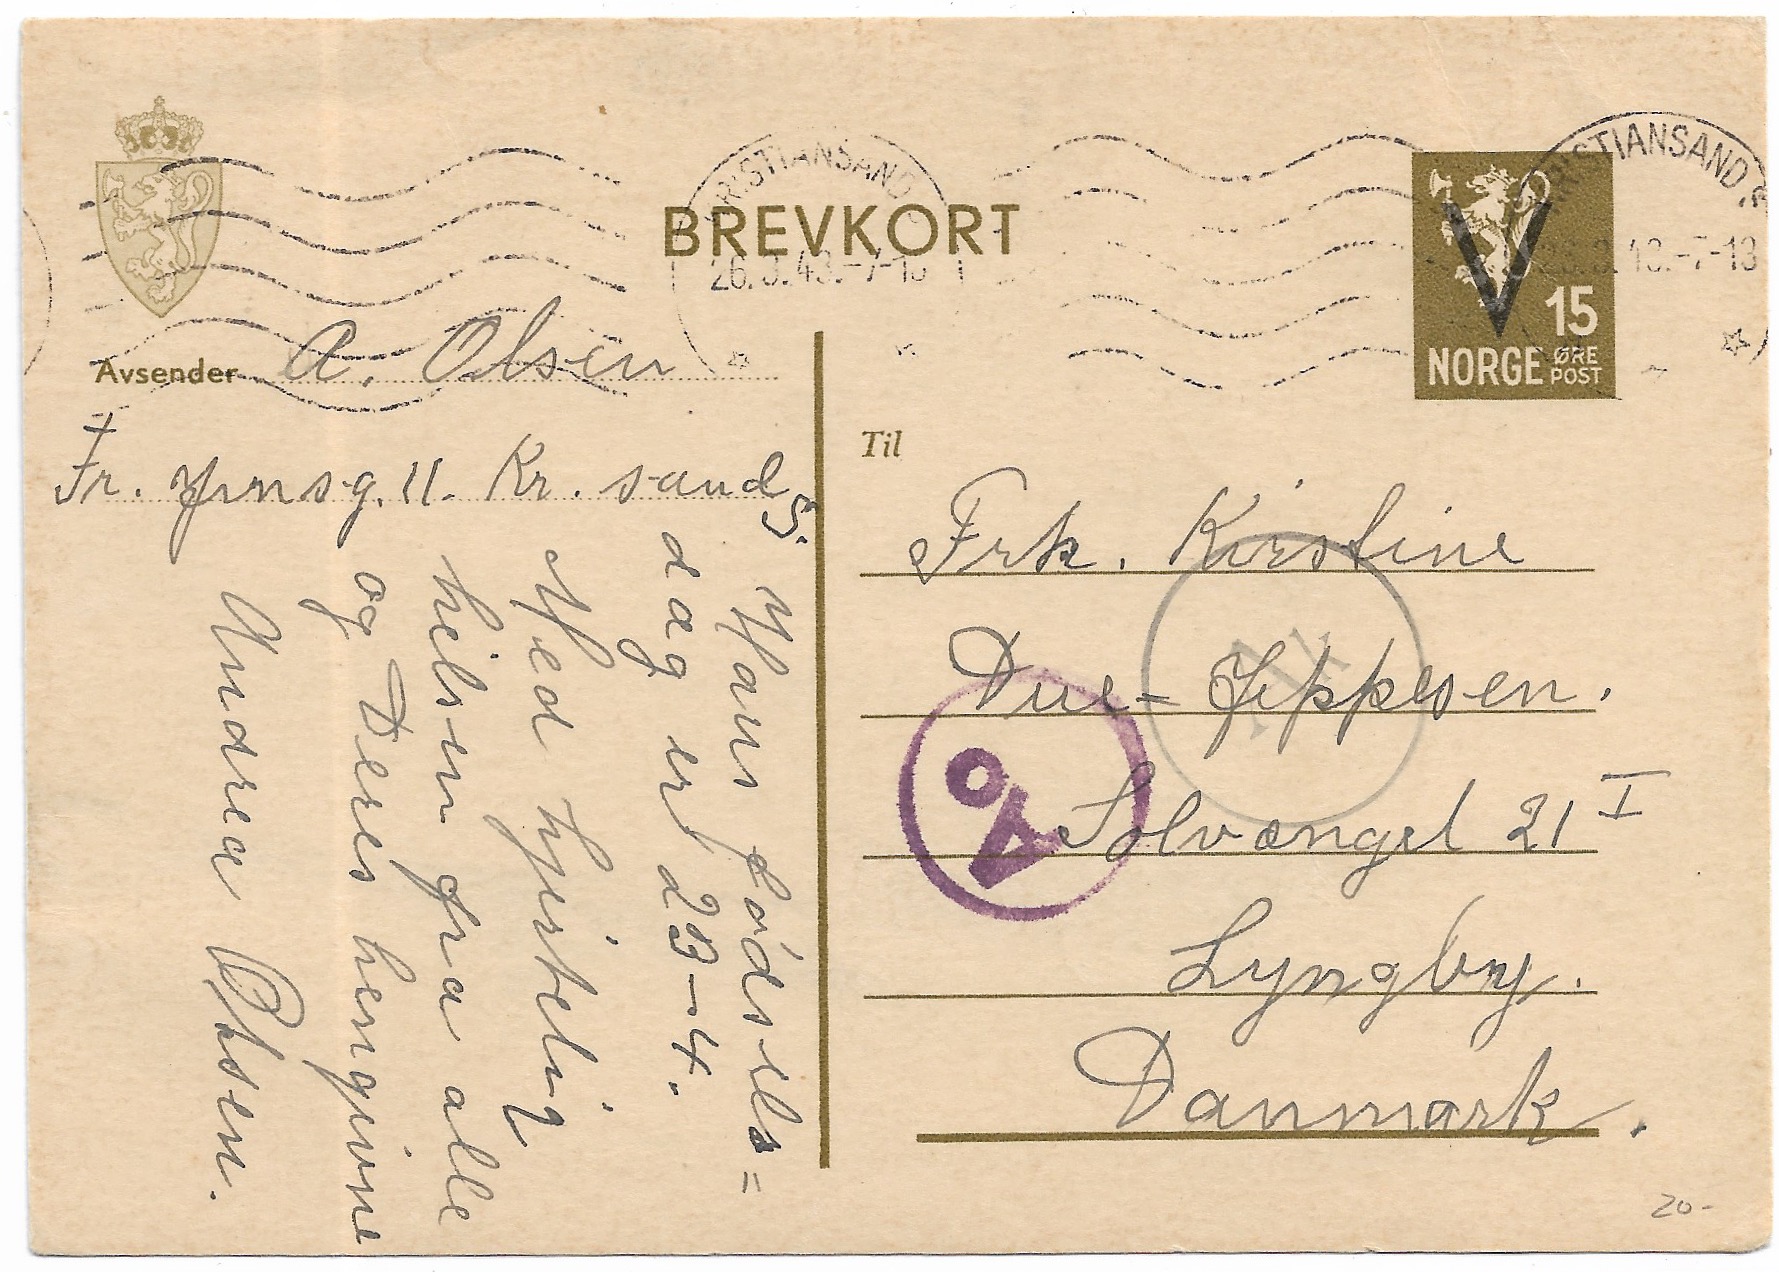 BREVKORT
KRISTIANSAND
26.3.43.-7-13
KRISTIANSAND.S
26.3.43.-7-13
V
15
NORGE ØRE
POST
Avsender A. Olsen
Kr. sand S.
Til
Frk. Kirstine
Due-Jeppesen.
Solvænget 21 I
Lyngby.
Danmark.
Ao
Hans fødsels=
dag er 23-4.
Med hjertelig
hilsen fra alle
og Deres hengivne
Andrea Olsen.
20-